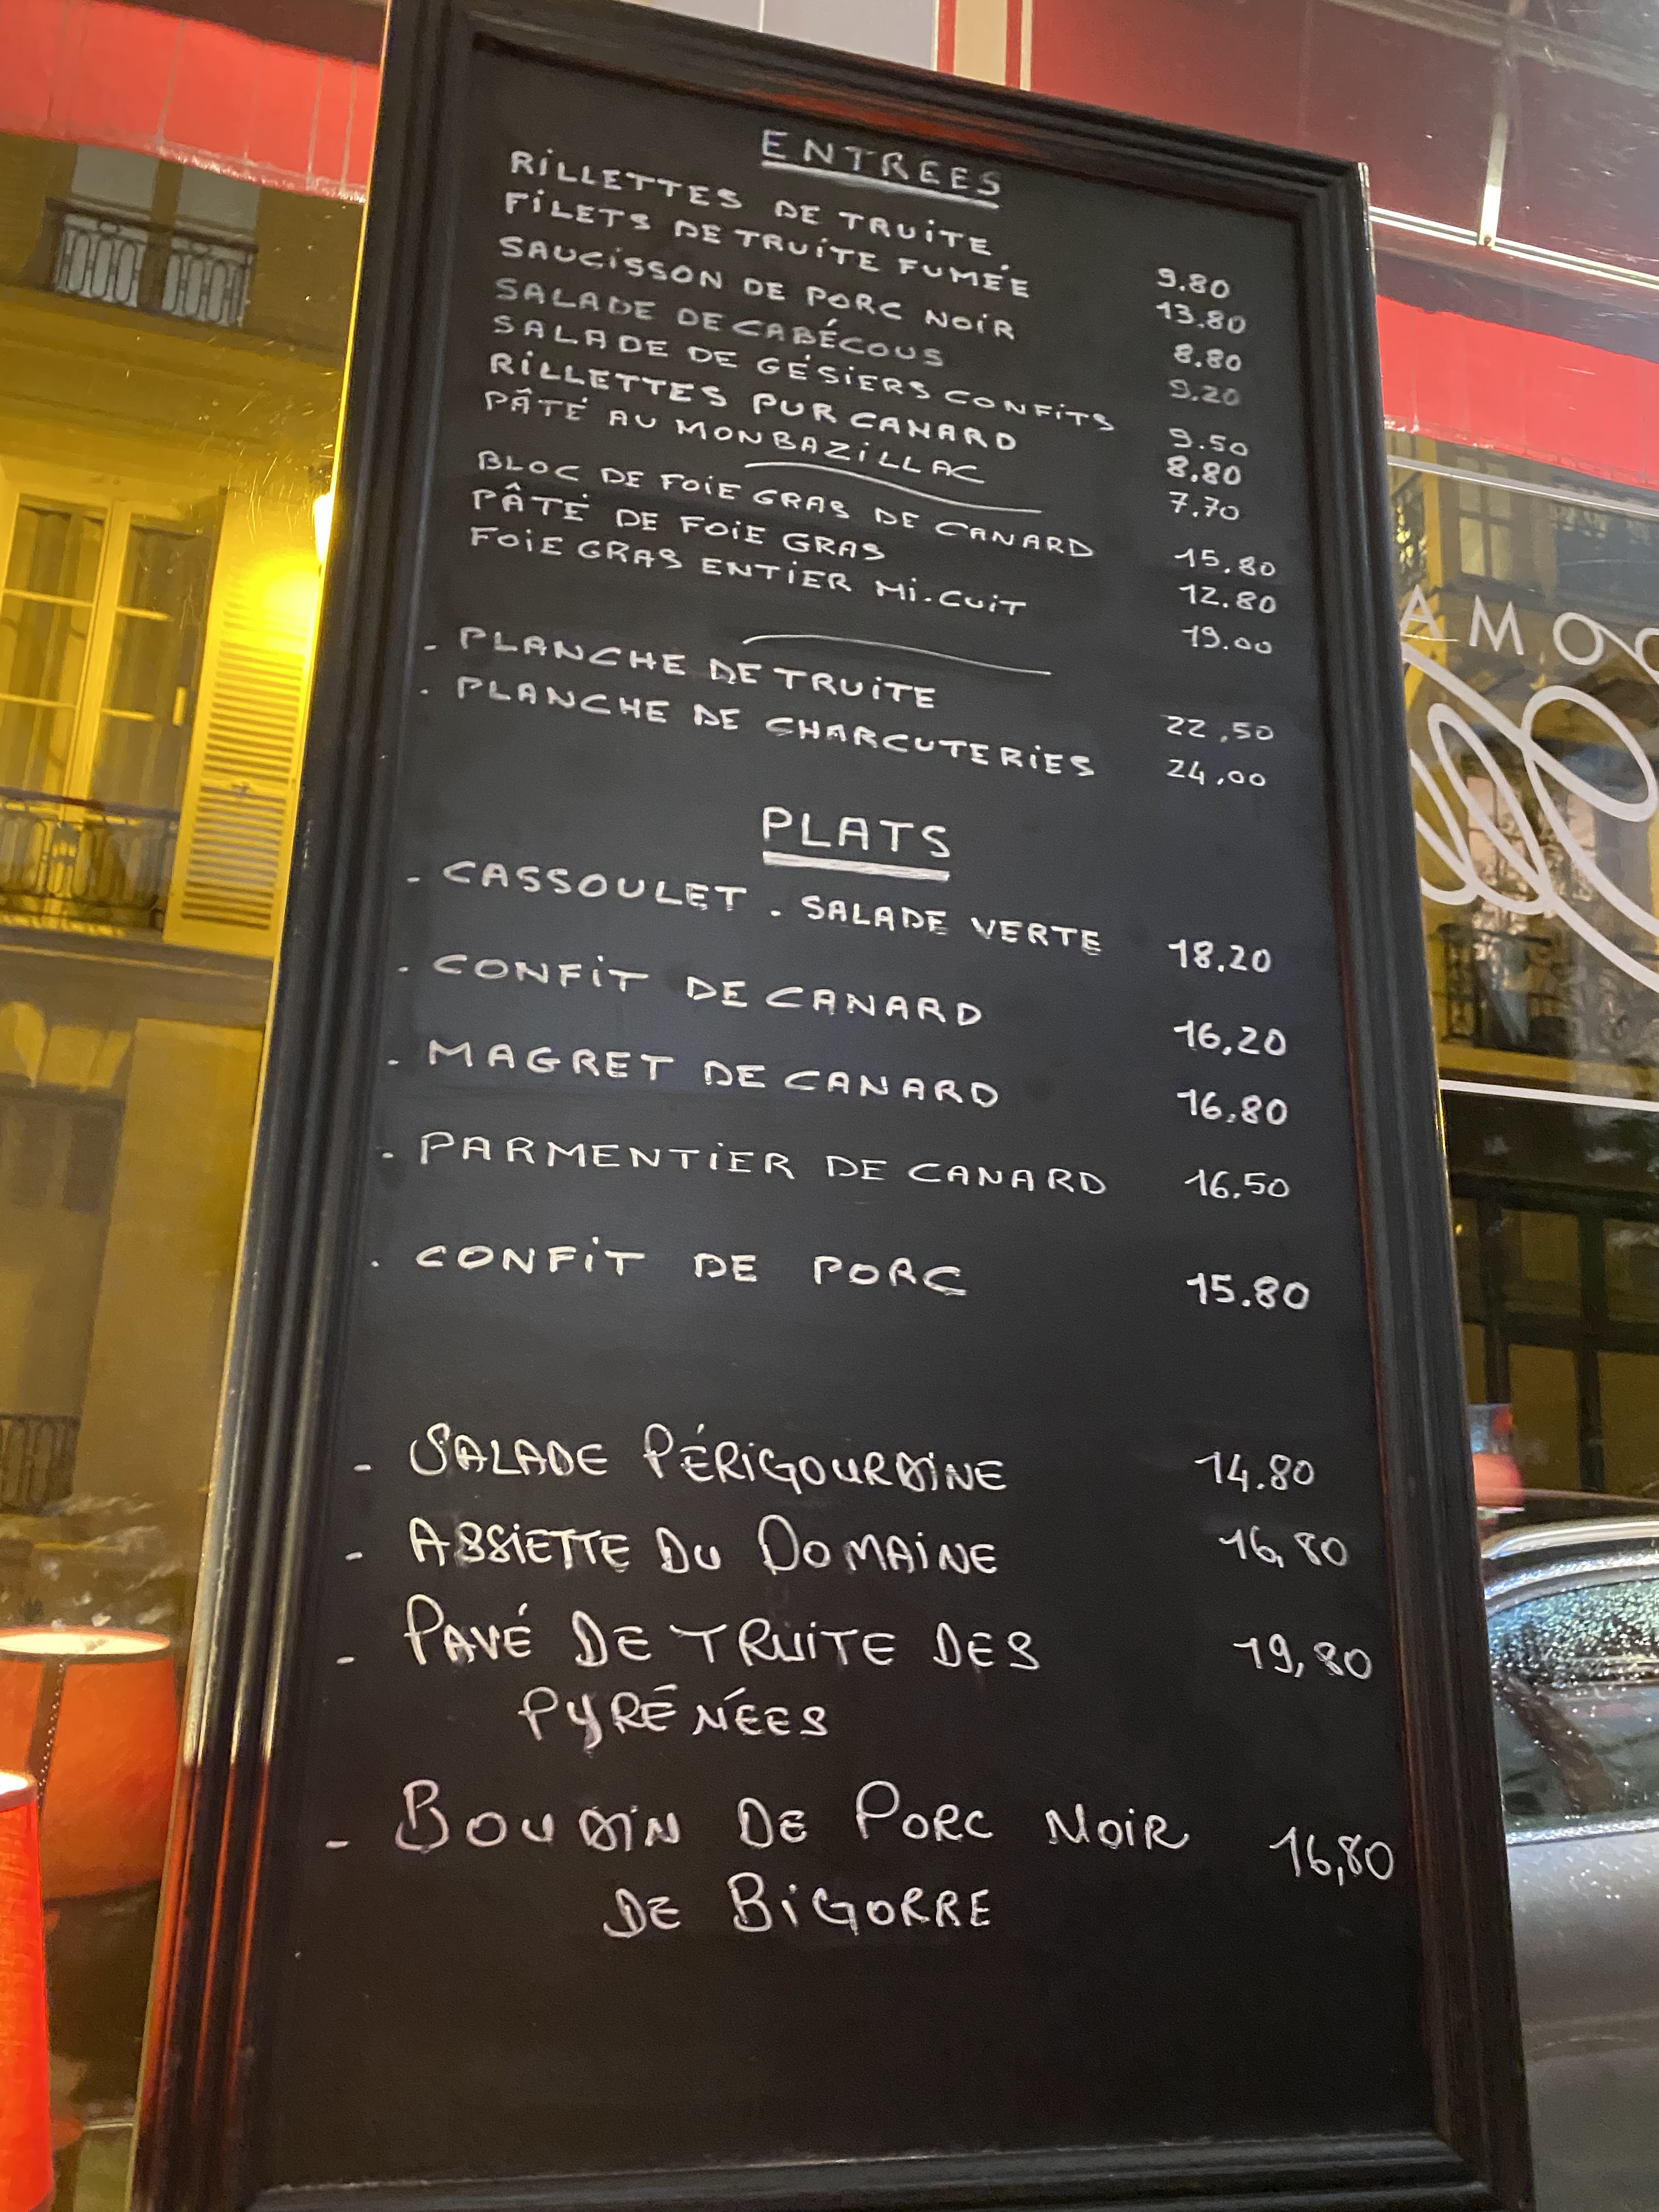 ENTREES
RILLETTES DE TRUITE. 9.80
FILETS DE TRUITE FUMÉE 13.80
SAUCISSON DE PORC NOIR 8.80
SALADE DE CABÉCOUS 9.20
SALADE DE GÉSIERS CONFITS 9.50
RILLETTES PUR CANARD 8.80
PÂTÉ AU MONBAZILLAC 7.70
BLOC DE FOIE GRAS DE CANARD 15.80
PÂTÉ DE FOIE GRAS 12.80
FOIE GRAS ENTIER MI-CUIT 19.00
- PLANCHE DE TRUITE 22,50
. PLANCHE DE CHARCUTERIES 24,00
PLATS
- CASSOULET . SALADE VERTE 18.20
. CONFIT DE CANARD 16,20
. MAGRET DE CANARD 16,80
. PARMENTIER DE CANARD 16.50
. CONFIT DE PORC 15.80
- SALADE PÉRIGOURDINE 14.80
- ASSIETTE DU DOMAINE 16,80
- PAVÉ DE TRUITE DES 19,80
PYRÉNÉES
- BOUDIN DE PORC NOIR 16,80
DE BIGORRE